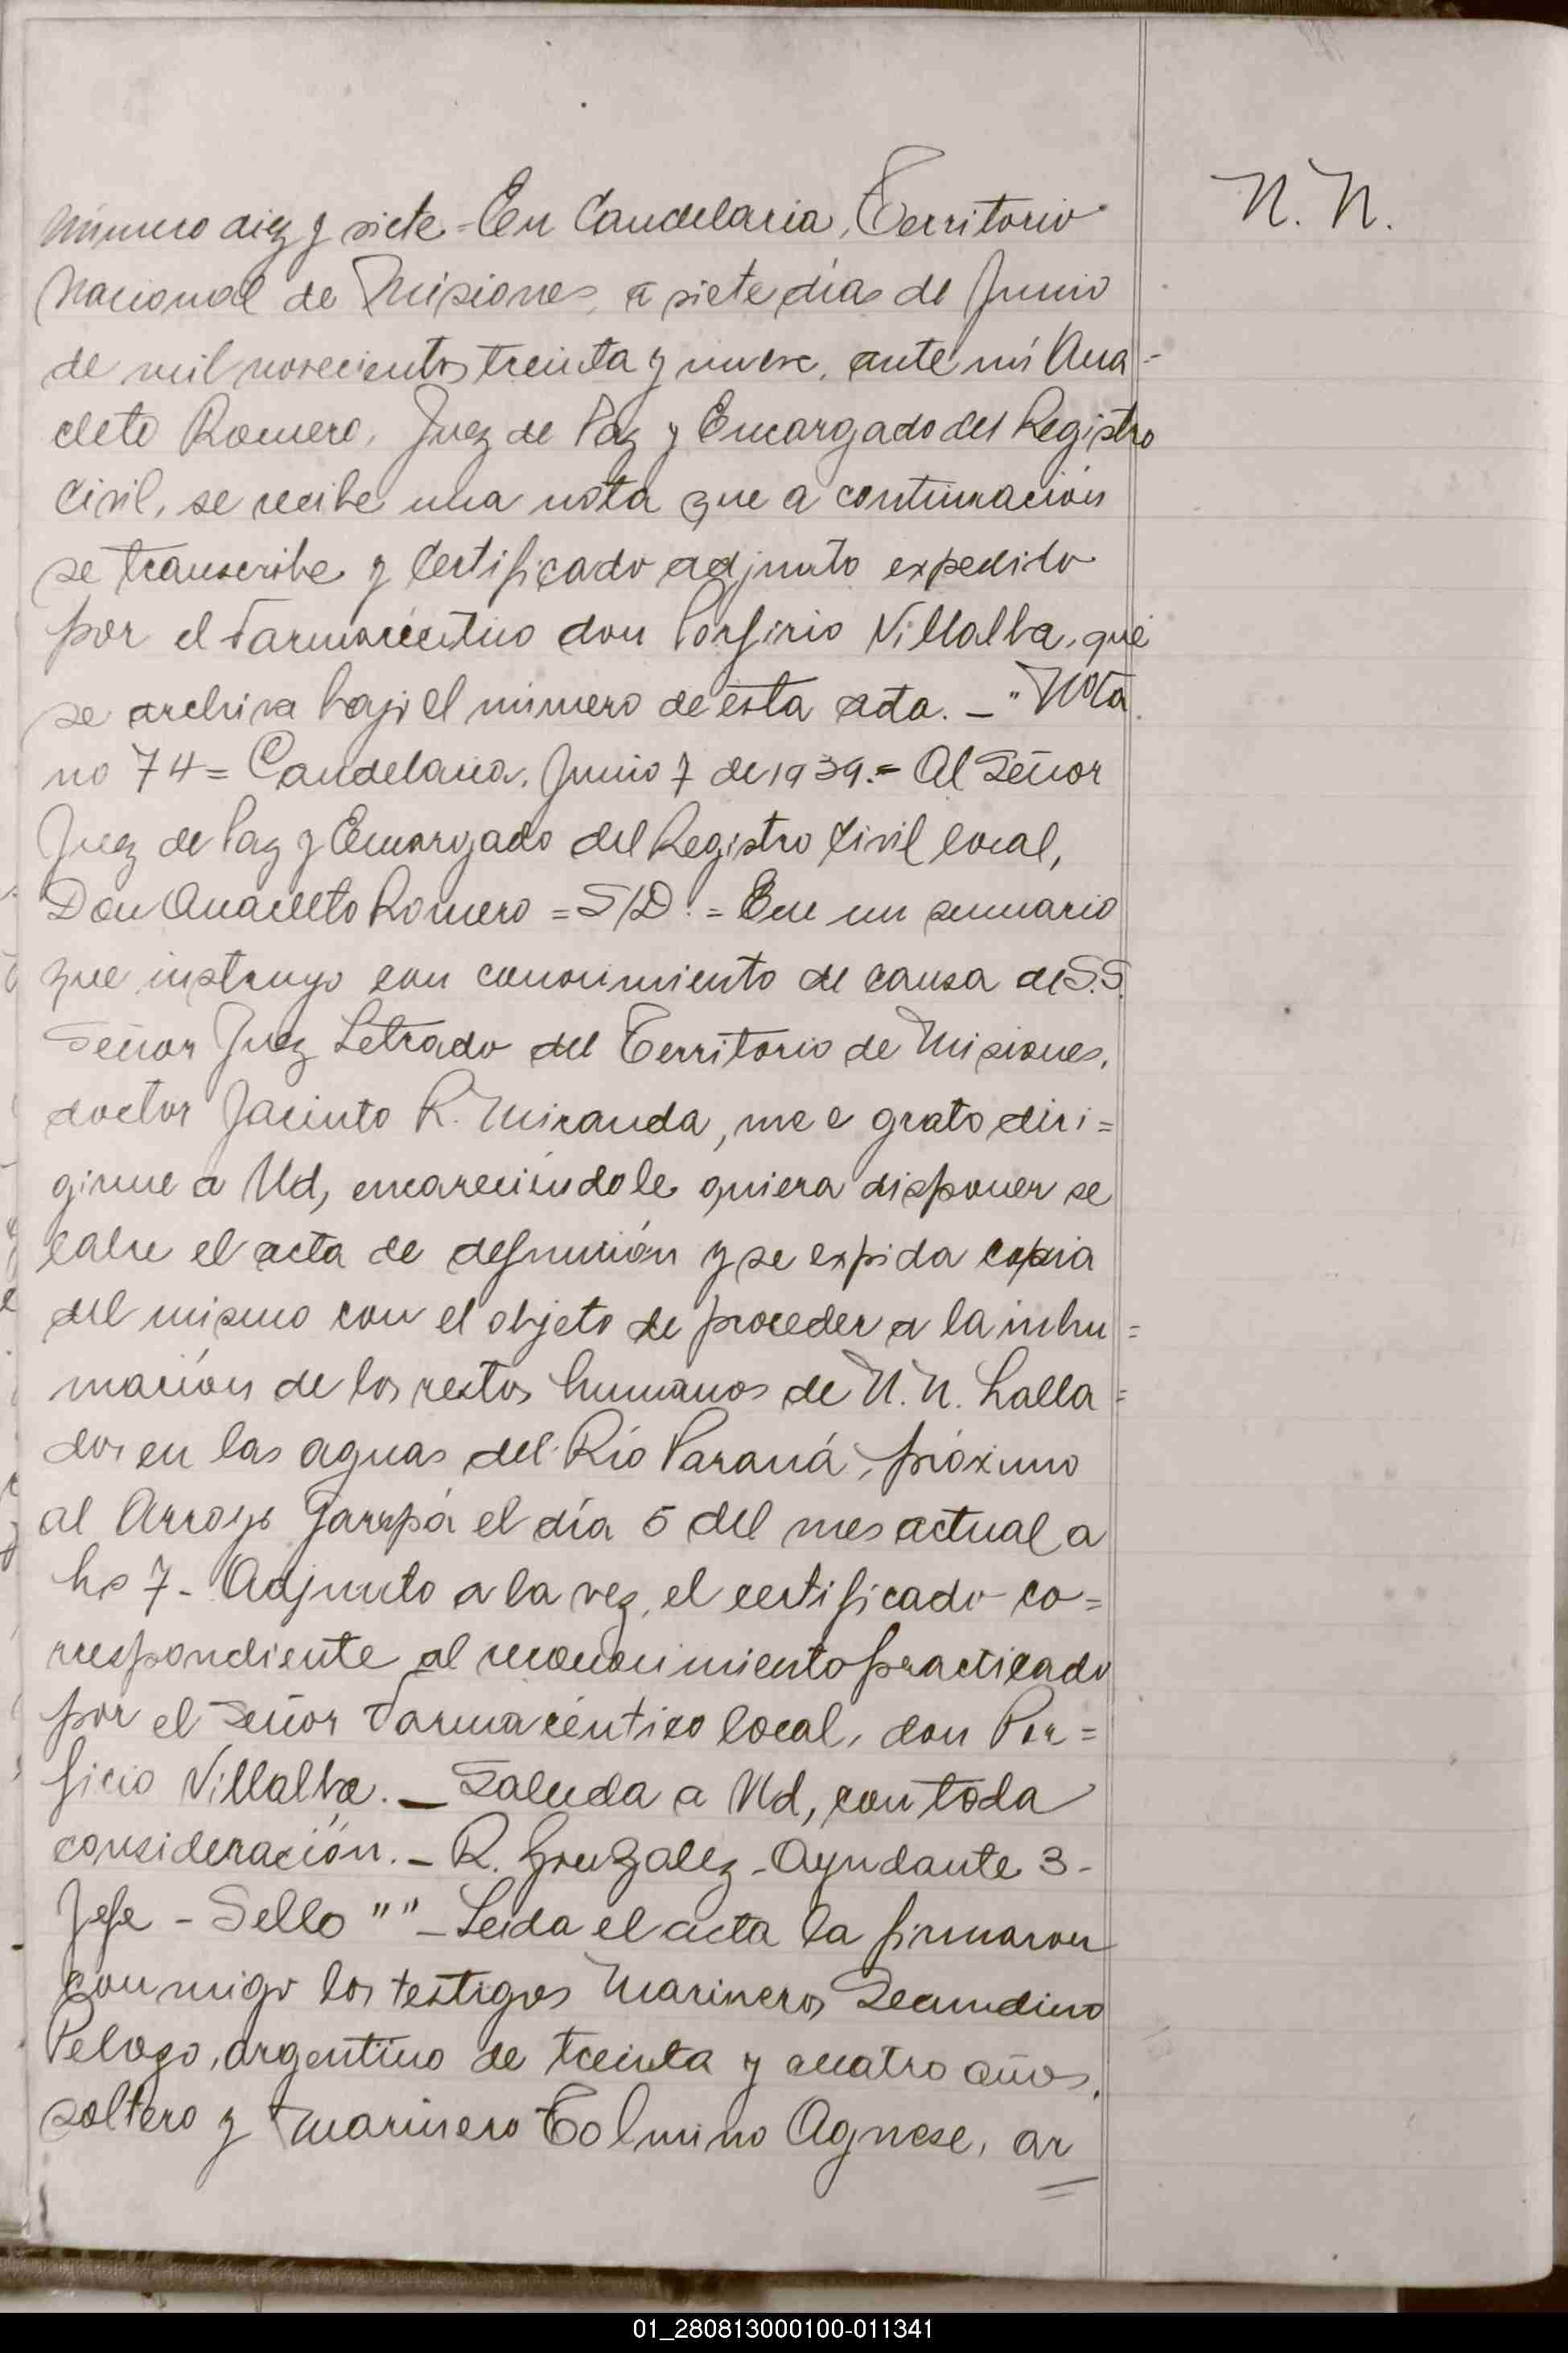 N. N.
Número diez y siete = En Candelaria, Territorio
Nacional de Misiones, a siete días de Junio
de mil novecientos treinta y nueve, ante mí Ana-
cleto Romero, Juez de Paz y Encargado del Registro
Civil, se recibe una nota que a continuación
se transcribe y Certificado adjunto expedido
por el Farmacéutico don Porfirio Villalba, que
se archiva bajo el número de esta acta. _ "Nota
no 74 = Candelaria, Junio 7 de 1939.= Al Señor
Juez de Paz y Encargado del Registro Civil local,
Don Anacleto Romero = S/D. = En un sumario
que instruyo con conocimiento de causa de S.S.
Señor Juez Letrado del Territorio de Misiones,
doctor Jacinto R. Miranda, me e grato diri=
girme a Ud, encareciéndole quiera disponer se
labre el acta de defunción y se expida copia
del mismo con el objeto de proceder a la inhu=
mación de los restos humanos de N. N. halla=
dos en las aguas del Río Paraná, próximo
al Arroyo el día 5 del mes actual a
hs 7 - Adjunto a la vez, el certificado co=
rrespondiente al reconocimiento practicado
por el Señor Farmacéutico local, don Por=
firio Villalba. _ Saluda a Ud, con toda
consideración. _ R. Gonzalez - Ayudante 3 -
Jefe - Sello "" _ Leida el acta la firmaron
conmigo los testigos Marineros Secundino
Pelozo, argentino de treinta y cuatro años,
soltero y Marinero Tolmino Agnese, ar=
01_280813000100-011341